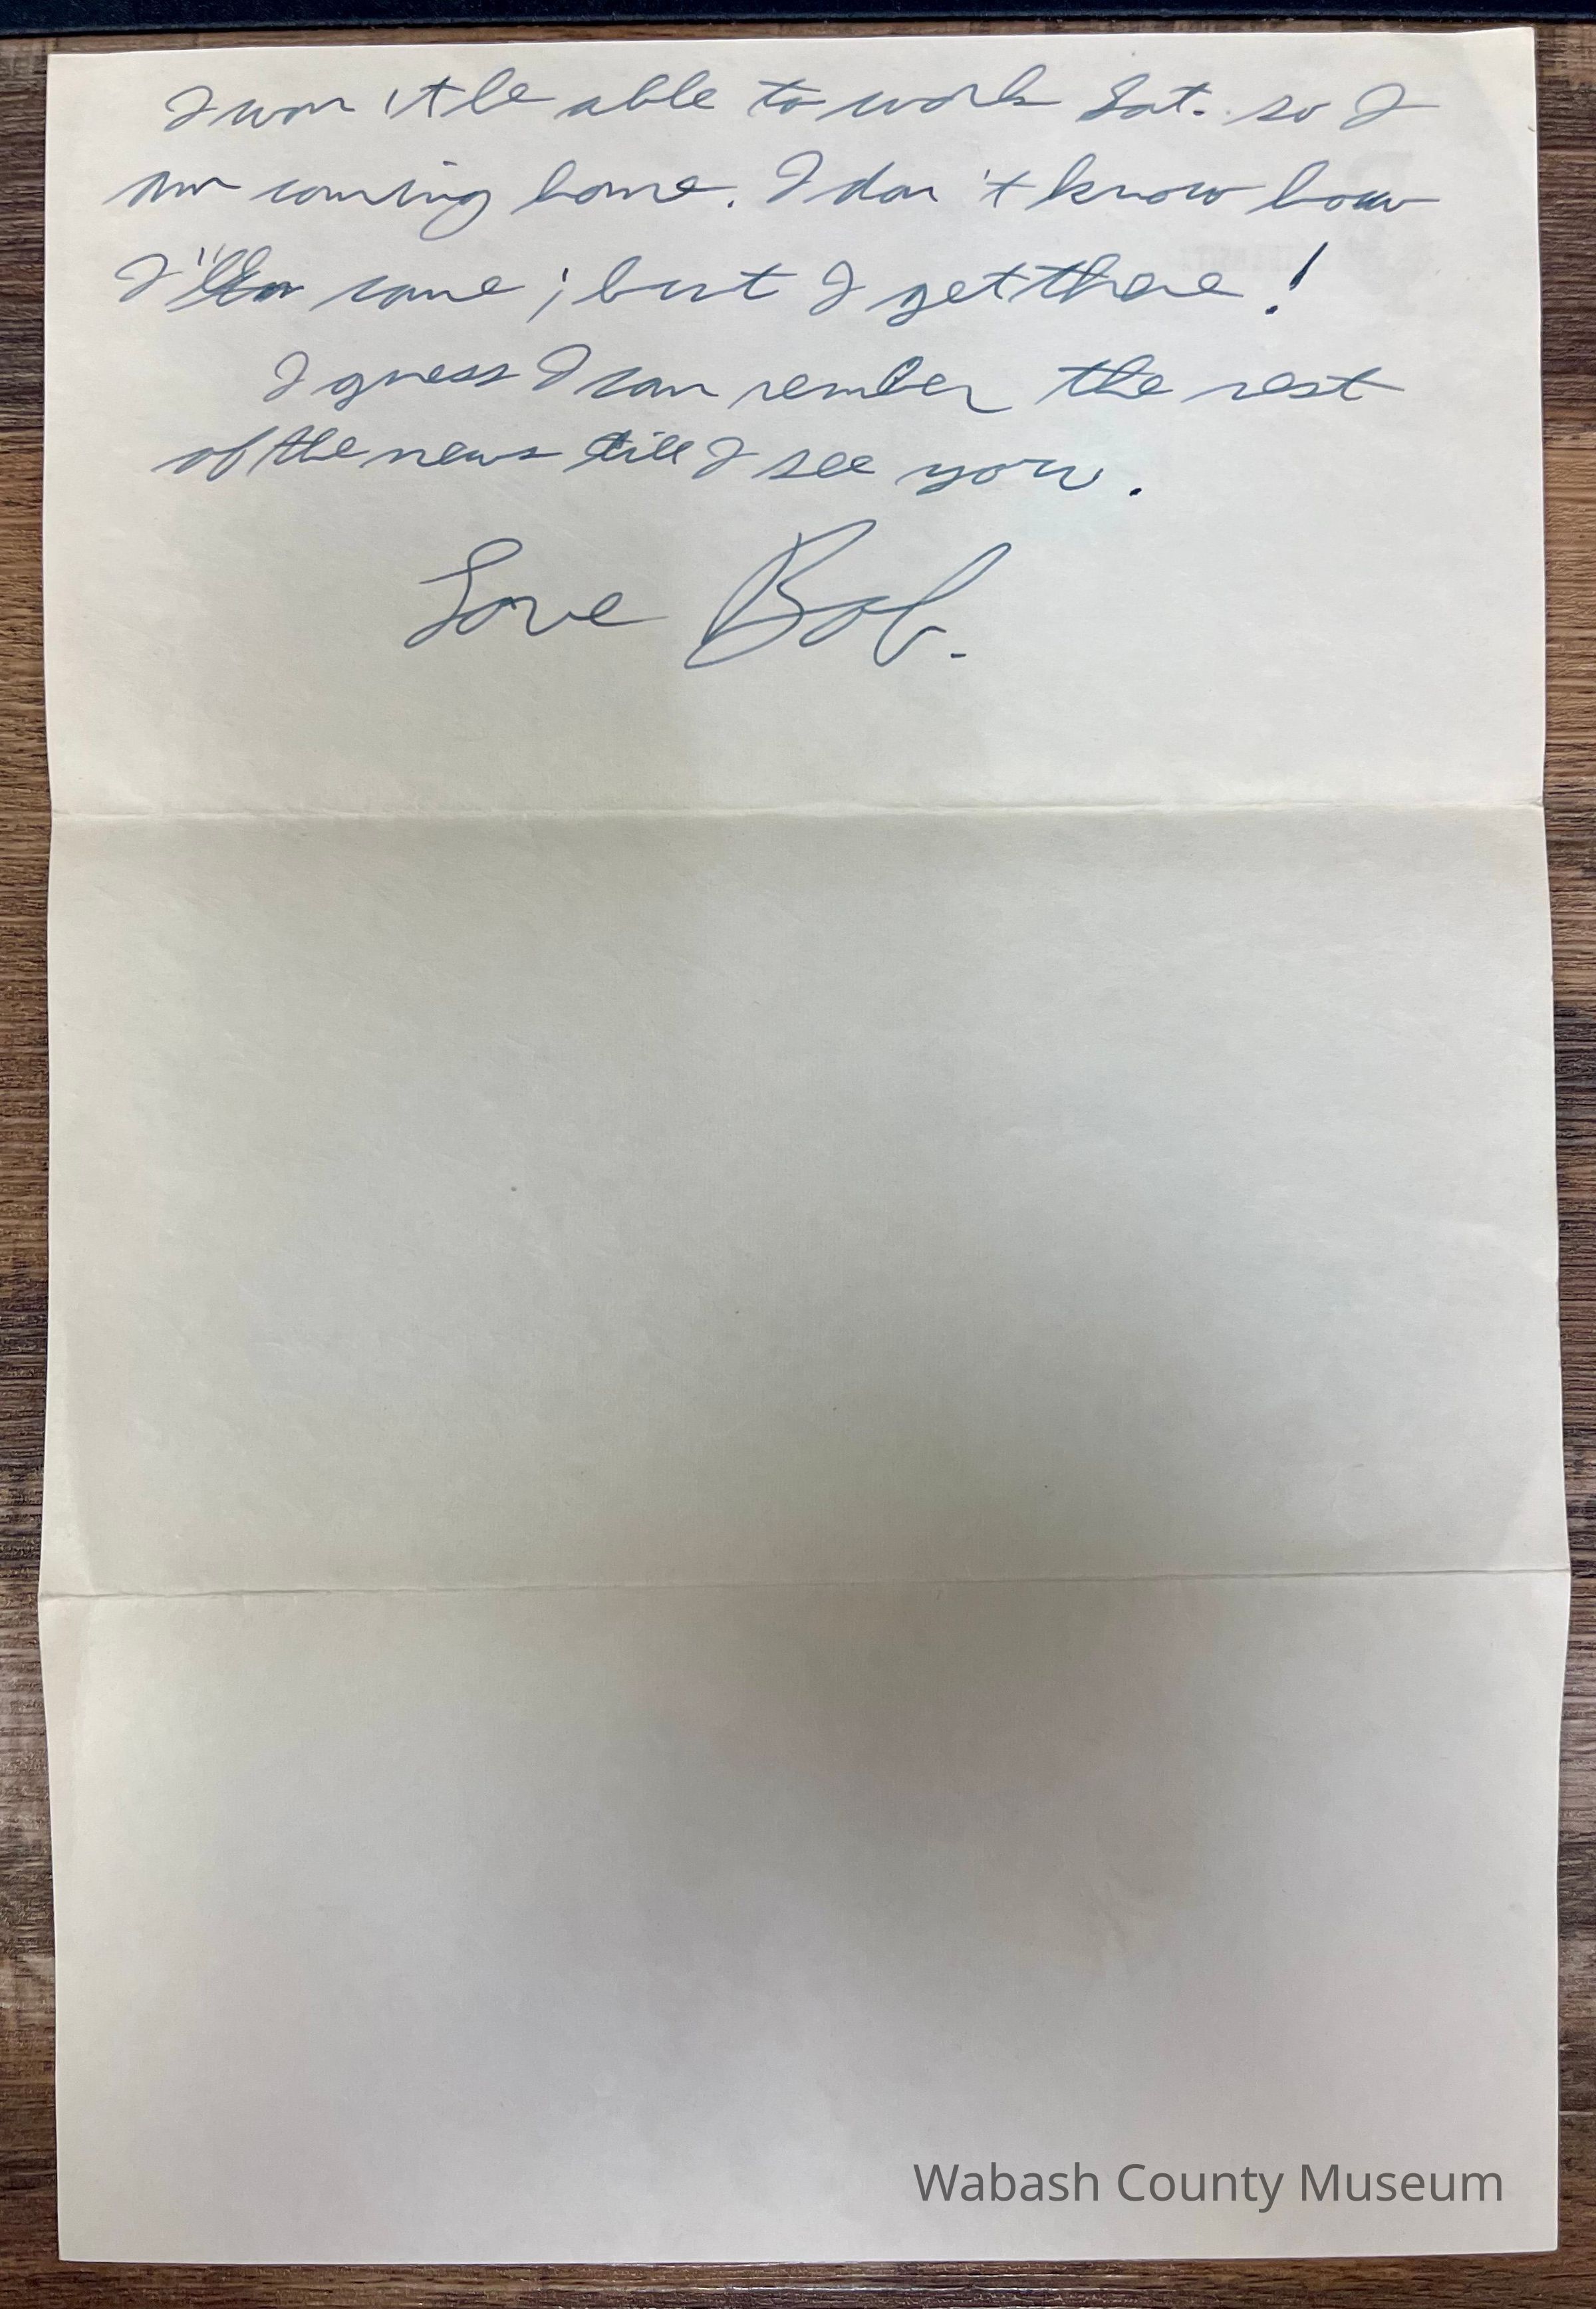 I won't be able to work Sat. so I
am coming home. I don't know how
I'll come; but I get there!
I guess I can rember the rest
of the news till I see you.
Love Bob.
Wabash County Museum